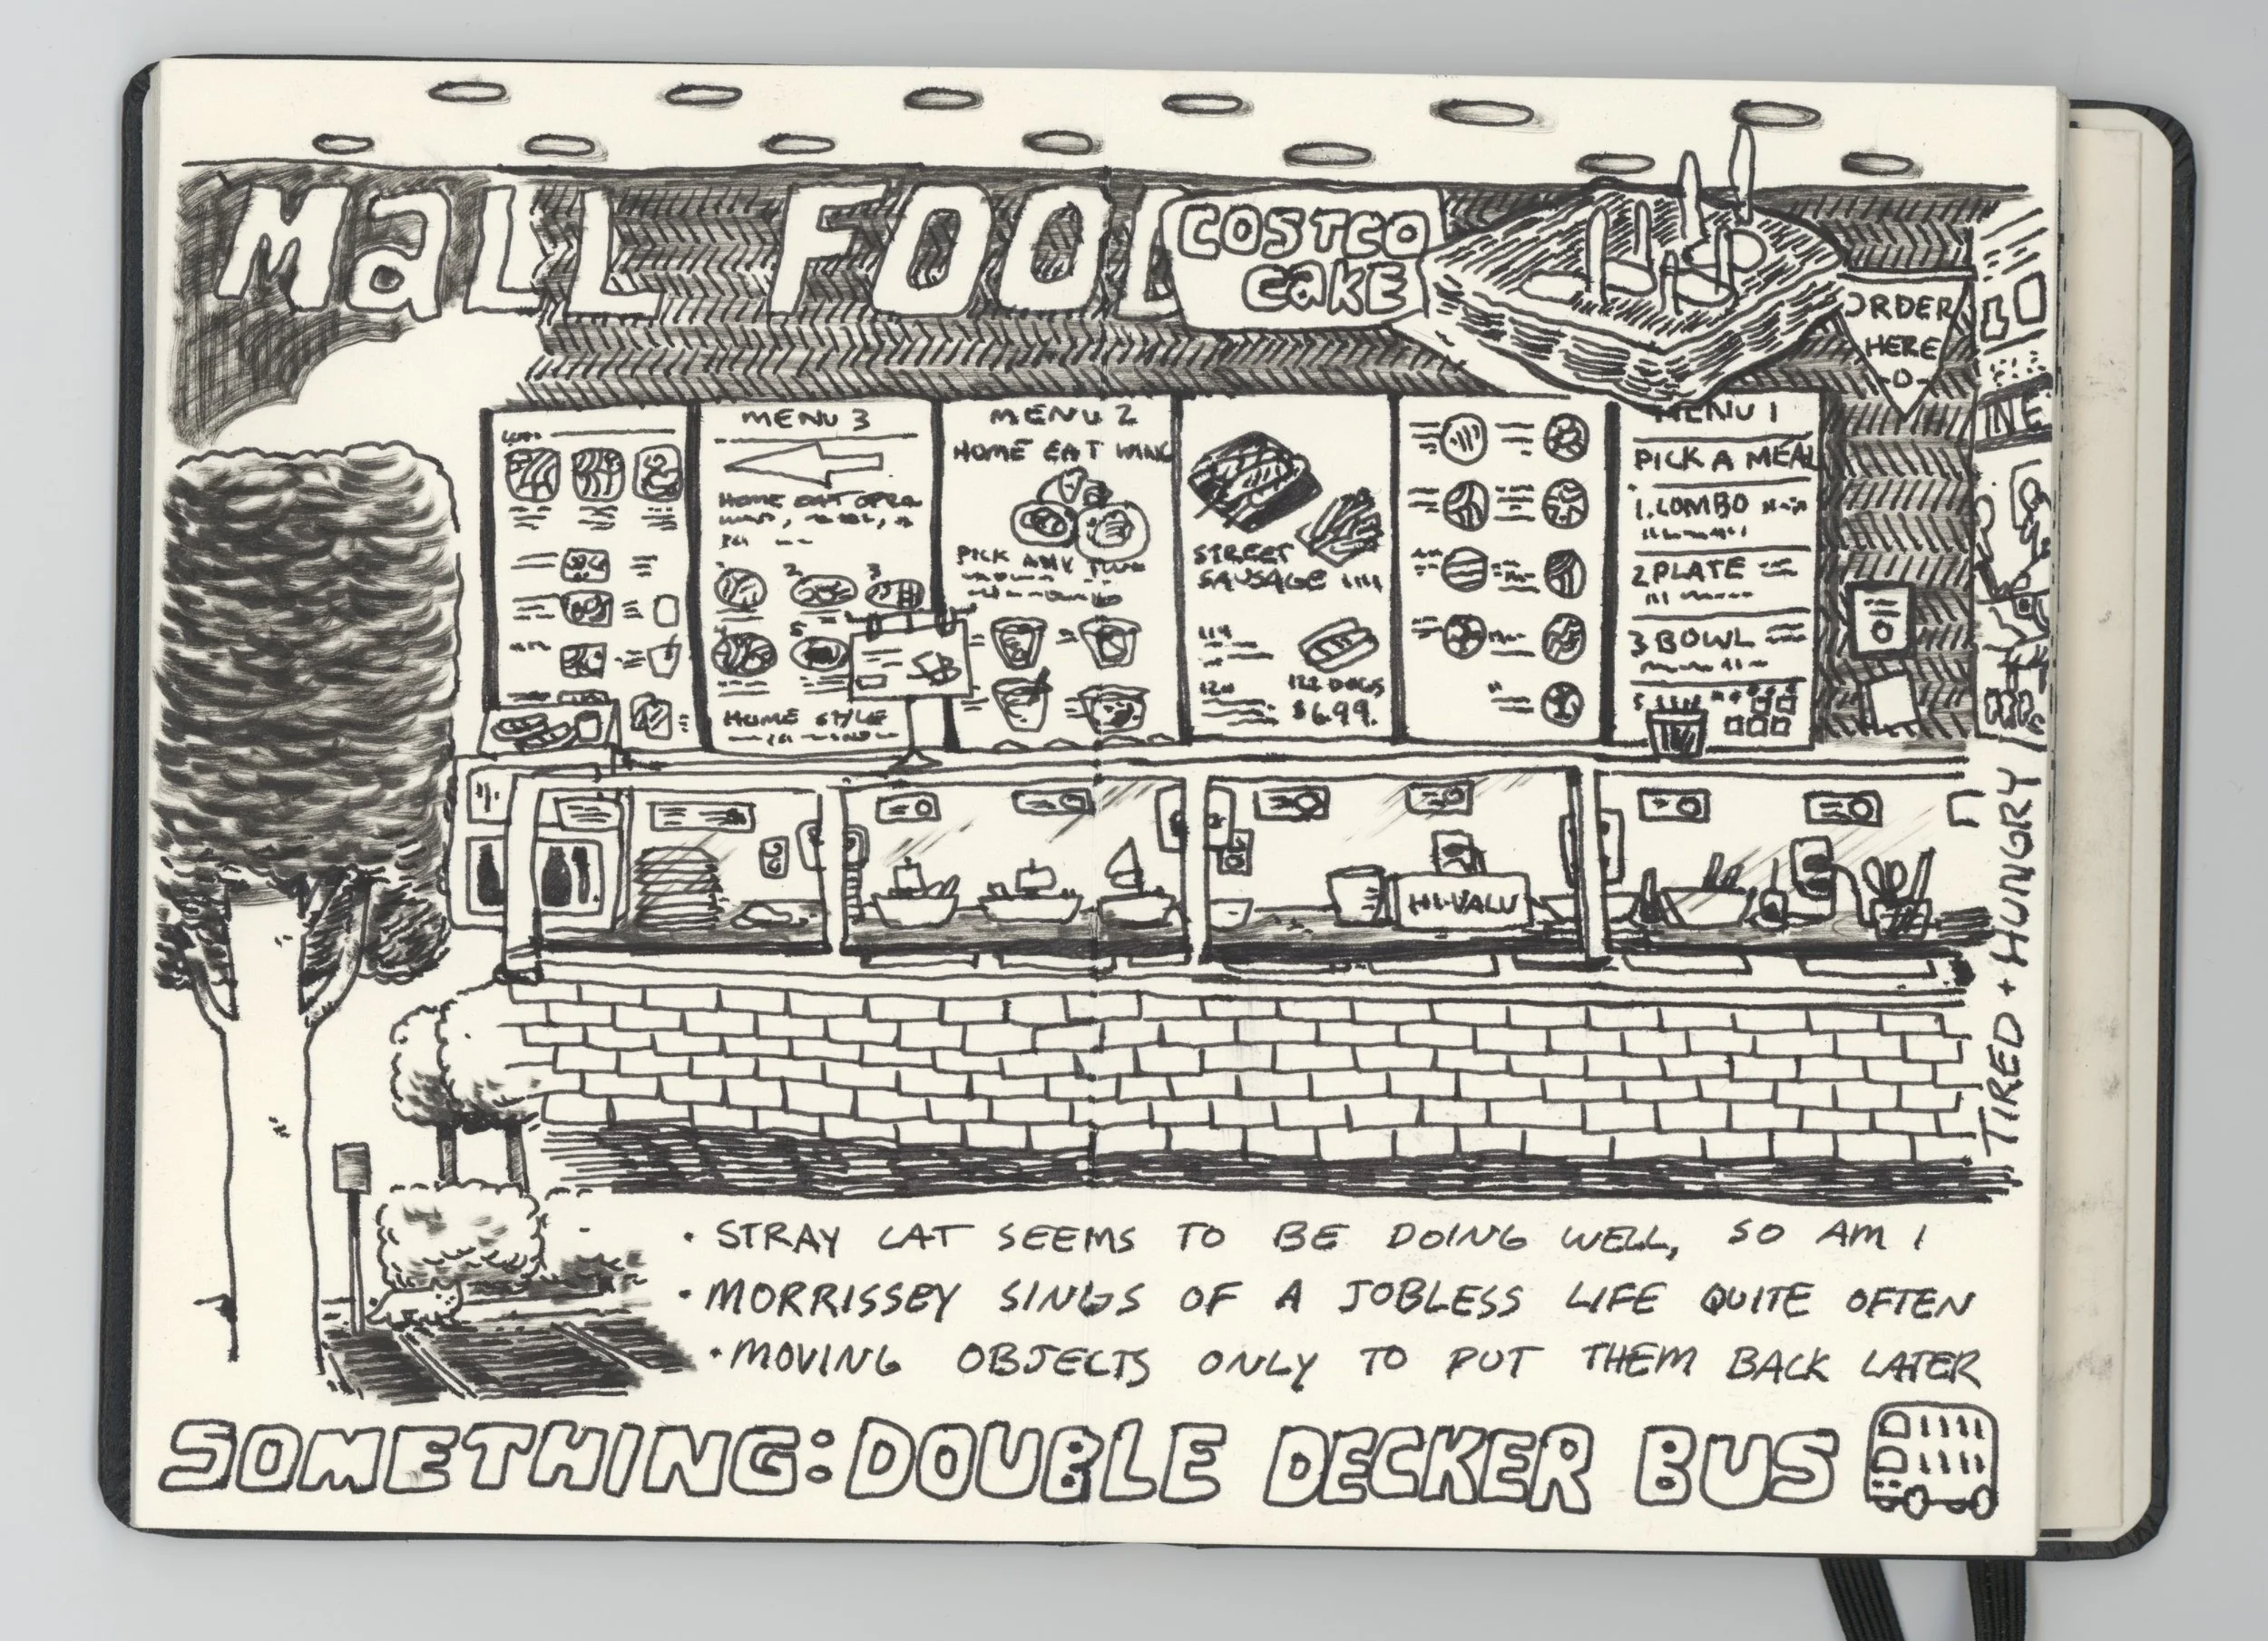 MALL FOOD
COSTCO
CAKE
ORDER
HERE
MENU 3
HOME
HOME STYLE
MENU 2
HOME EAT
PICK ANY TWO
STREET
SAUSAGE
122 DOGS
$6.99.
MENU 1
PICK A MEAL
1. COMBO
2 PLATE
3 BOWL
HI-VALU
TIRED + HUNGRY
• STRAY CAT SEEMS TO BE DOING WELL, SO AM I
• MORRISSEY SINGS OF A JOBLESS LIFE QUITE OFTEN
• MOVING OBJECTS ONLY TO PUT THEM BACK LATER
SOMETHING: DOUBLE DECKER BUS